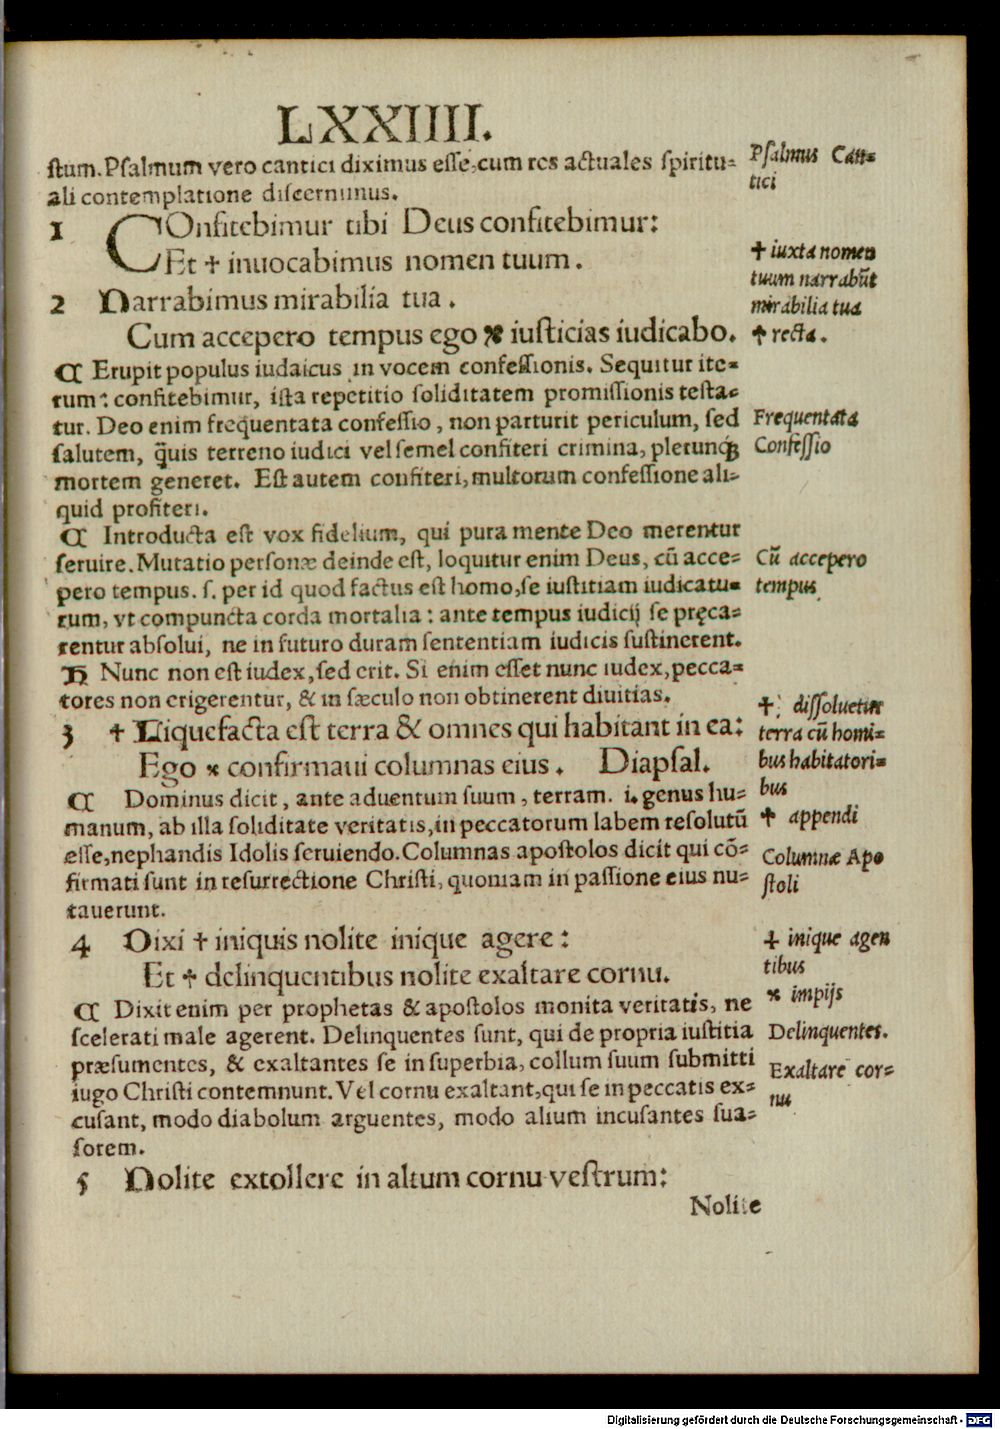 LXXIIII.
ſtum. Pſalmum vero cantici diximus eſſe, cum res actuales ſpiritu-
ali contemplatione diſcernimus.
Pſalmus Can-
tici
1 COnfitebimur tibi Deus confitebimur:
Et ✝ inuocabimus nomen tuum.
✝ iuxta nomen
tuum narrabũt
mirabilia tua
2 Narrabimus mirabilia tua.
Cum accepero tempus ego ⁜ iuſticias iudicabo.
✝ recta.
¶ Erupit populus iudaicus in vocem confeſſionis. Sequitur ite-
rum: confitebimur, iſta repetitio ſoliditatem promiſſionis teſta-
tur. Deo enim frequentata confeſſio, non parturit periculum, ſed
ſalutem, q̃uis terreno iudici vel ſemel confiteri crimina, plerunqꝫ
mortem generet. Eſt autem confiteri, multorum confeſſione ali-
quid profiteri.
Frequentata
Confeſſio
¶ Introducta eſt vox fidelium, qui pura mente Deo merentur
ſeruire. Mutatio perſonæ deinde eſt, loquitur enim Deus, cũ acce-
pero tempus. ſ. per id quod factus eſt homo, ſe iuſtitiam iudicatu-
rum, vt compuncta corda mortalia: ante tempus iudicij ſe pręca-
rentur abſolui, ne in futuro duram ſententiam iudicis ſuſtinerent.
Cũ accepero
tempus
H Nunc non eſt iudex, ſed erit. Si enim eſſet nunc iudex, pecca-
tores non erigerentur, & in ſæculo non obtinerent diuitias.
3 ✝ Liquefacta eſt terra & omnes qui habitant in ea:
Ego ⁜ confirmaui columnas eius. Diapſal.
✝ diſſoluetur
terra cũ homi-
bus habitatori-
bus
✝ appendi
¶ Dominus dicit, ante aduentum ſuum, terram. i. genus hu-
manum, ab illa ſoliditate veritatis, in peccatorum labem reſolutũ
eſſe, nephandis Idolis ſeruiendo. Columnas apoſtolos dicit qui cõ-
firmati ſunt in reſurrectione Chriſti, quoniam in paſſione eius nu-
tauerunt.
Columnæ Apo
ſtoli
4 Dixi ✝ iniquis nolite inique agere:
Et ✝ delinquentibus nolite exaltare cornu.
✝ inique agen
tibus
⁜ impijs
¶ Dixit enim per prophetas & apoſtolos monita veritatis, ne
ſcelerati male agerent. Delinquentes ſunt, qui de propria iuſtitia
præſumentes, & exaltantes ſe in ſuperbia, collum ſuum ſubmitti
iugo Chriſti contemnunt. Vel cornu exaltant, qui ſe in peccatis ex-
cuſant, modo diabolum arguentes, modo alium incuſantes ſua-
ſorem.
Delinquentes.
Exaltare cor-
nu
5 Nolite extollere in altum cornu veſtrum:
Nolite
Digitalisierung gefördert durch die Deutsche Forschungsgemeinschaft - DFG